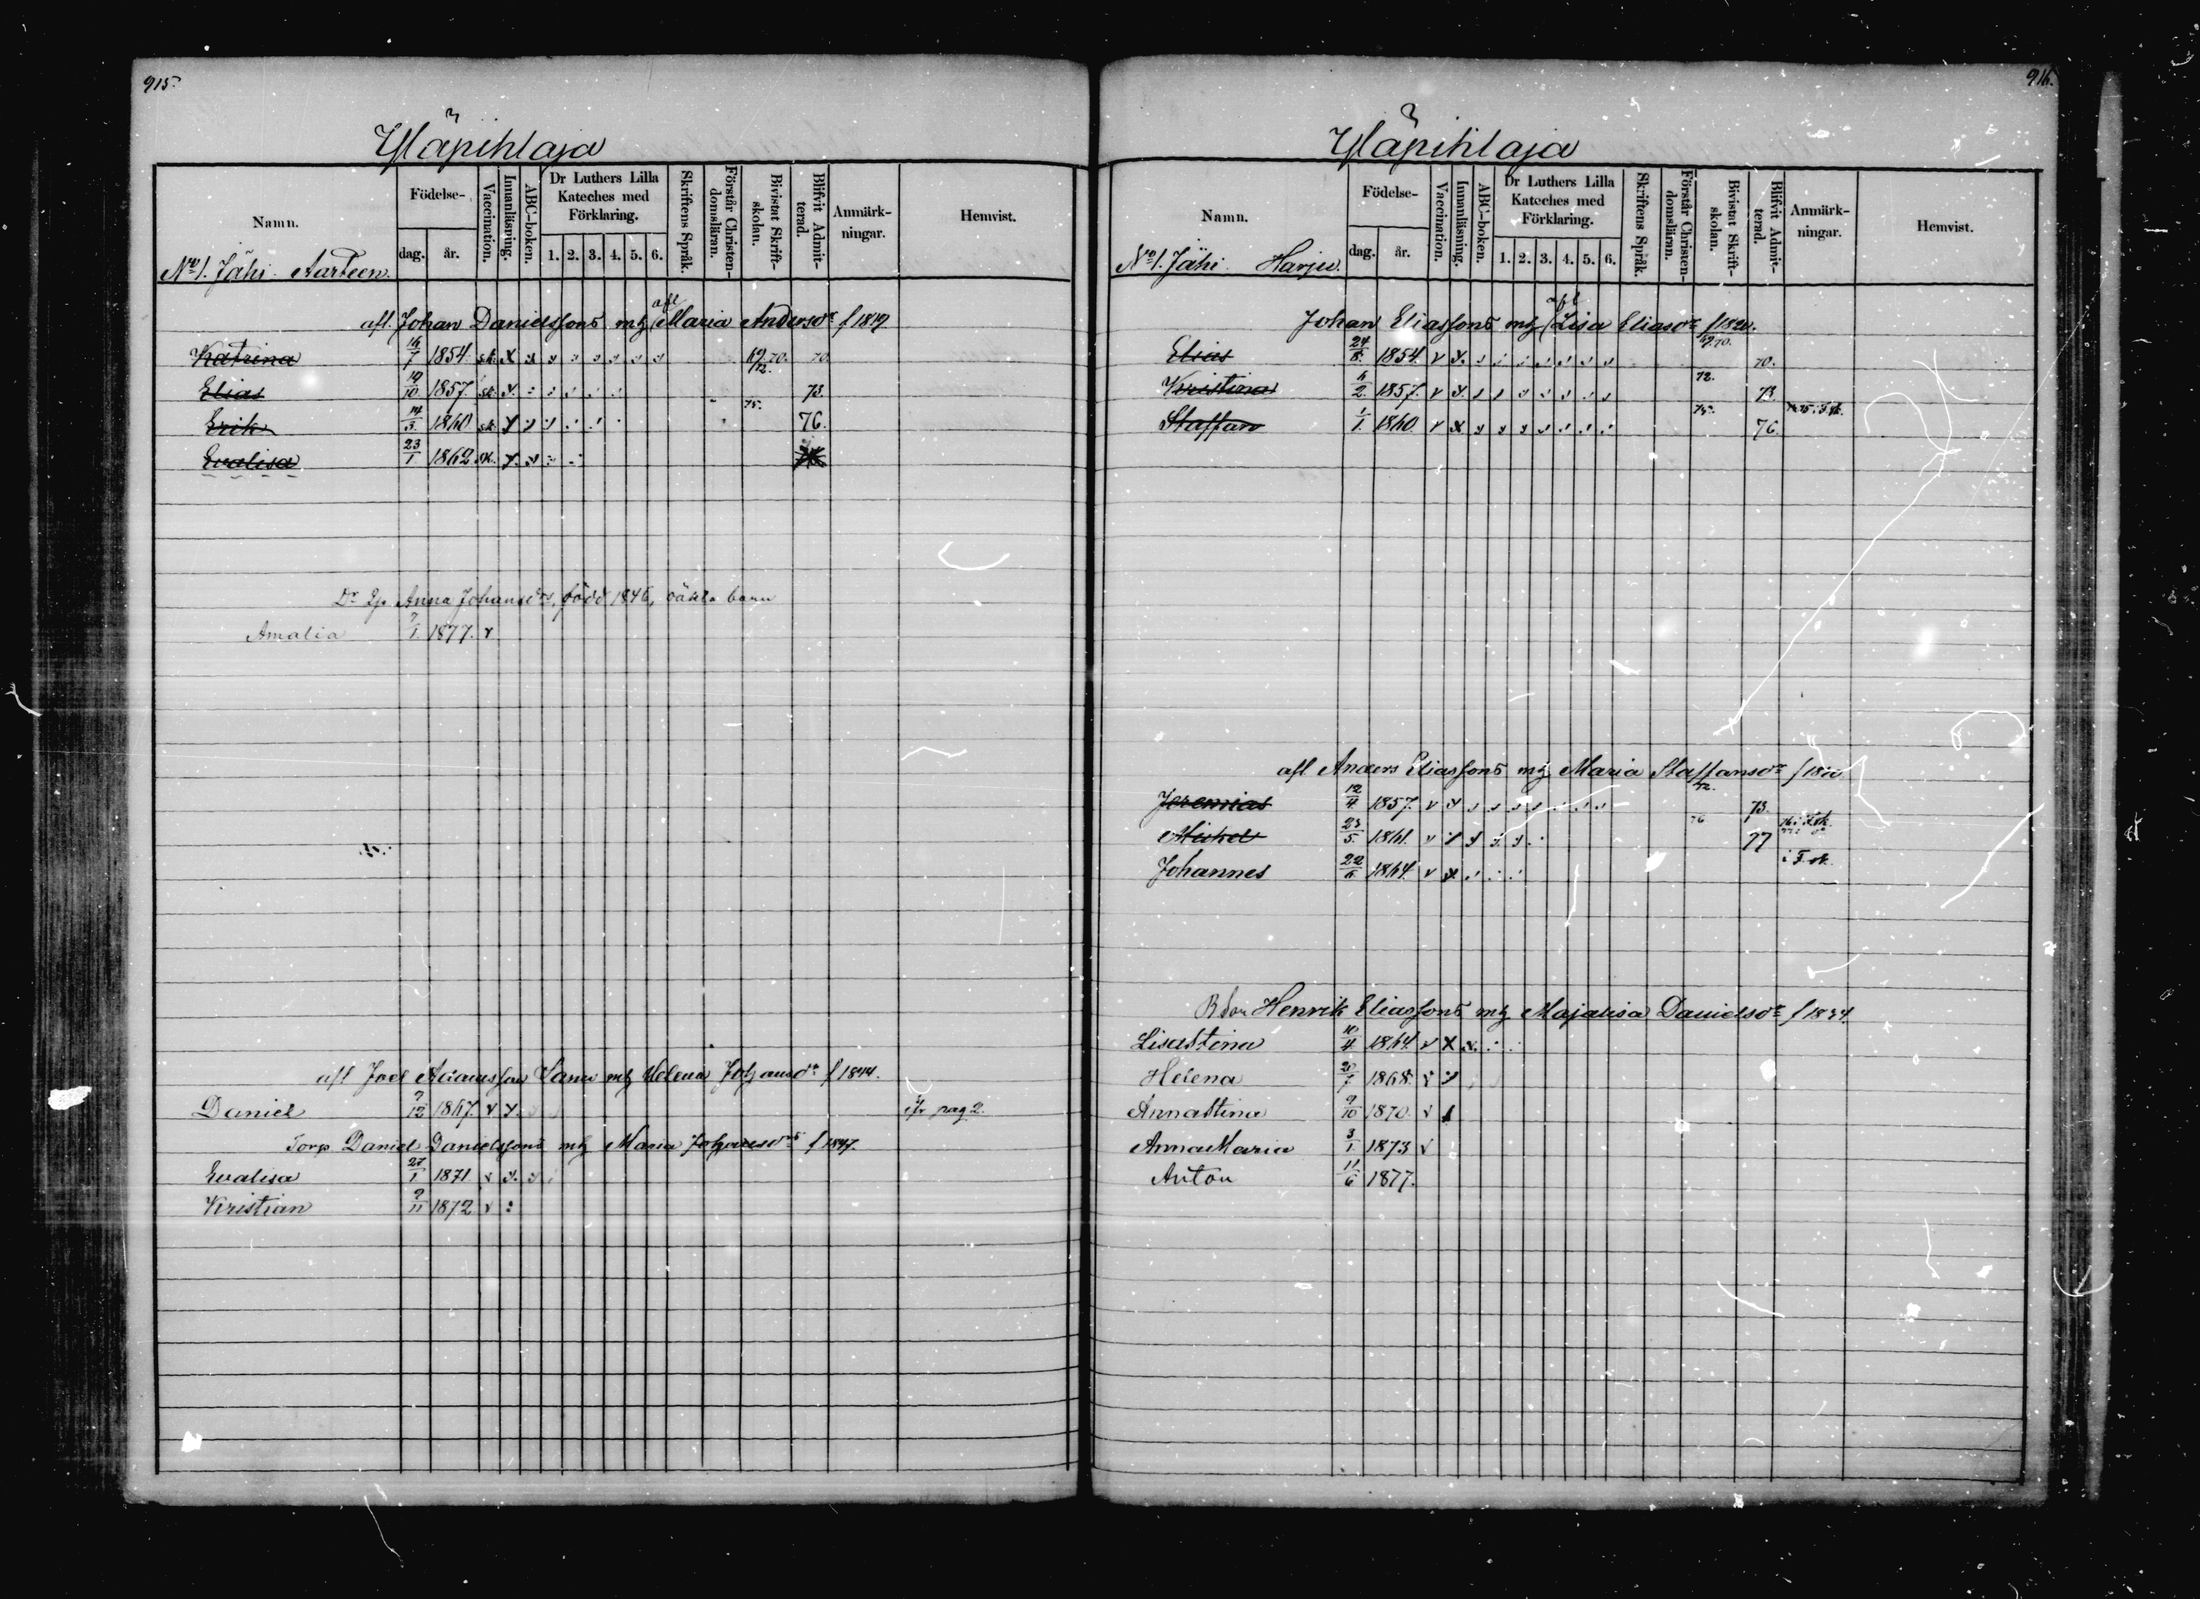 915.
Yläpihlaja
Namn.
Födelse-
dag.
år.
Vaccination.
Innanläsning.
ABC-boken.
Dr Luthers Lilla
Kateches med
Förklaring.
1. 2. 3. 4. 5. 6.
Skriftens Språk.
Förstår Christen-
domsläran.
Bivistat Skrift-
skolan.
Blifvit Admit-
terad.
Anmärk-
ningar.
Hemvist.
No 1. Jähi. Aarteen.
afl. Johan Danielssons mh afl Maria Andersdr f 1819.
Katrina 16/7 1854. sk. x 69.70. 70
Elias 19/10 1857. sk. x. 72. 73.
Erik 14/3 1860 sk. 75. 76.
Evalisa 23/1 1862 sk.
Anna Johansdrs, född 1846, oäkta barn
Amalia 7/1 1877. v
afl Joel Adamsson Sam mh Helena Johansdr f 1844.
Daniel 7/12 1867. v pag 2.
Torp Daniel Danielssons mh Maria Johansdrs f 1847.
Evalisa 27/1 1871 v
Kristian 9/11 1872 v
916.
Yläpihlaja
Namn.
Födelse-
dag.
år.
Vaccination.
Innanläsning.
ABC-boken.
Dr Luthers Lilla
Kateches med
Förklaring.
1. 2. 3. 4. 5. 6.
Skriftens Språk.
Förstår Christen-
domsläran.
Bivistat Skrift-
skolan.
Blifvit Admit-
terad.
Anmärk-
ningar.
Hemvist.
No 1. Jähi. Harju.
Johan Eliassons mh afl Lisa Eliasdr f 1820.
Elias 24/8 1854. v 69.70. 70.
Kristina 6/2 1857. v 72. 73
Staffan 1/1 1860. v x 75. 76.
afl Anders Eliassons mh Maria Staffansdr
Jeremias 12/4 1857. v 72. 73.
Mickel 23/5 1861. v 76 77
Johannes 22/6 1864. v x
Bdon Henrik Eliassons mh Majalisa Danielsdr f 1834.
Lisastina 10/4 1864. v x
Helena 1868. v
Annastina 9/10 1870. v
Anna Maria 3/1 1873 v
Anton 11/6 1877.